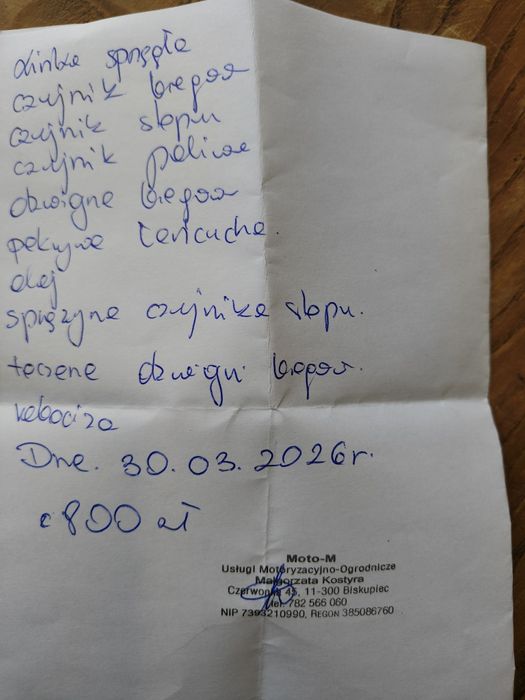 Linka sprzęgła
czujnik biegów
czujnik stopu
czujnik paliwa
dźwignia biegów
pokrywa łańcucha.
olej
sprężyna czujnika stopu.
toczenie dźwigni biegów.
robocizna
Dnia. 30.03.2026r.
800 zł
Moto-M
Usługi Motoryzacyjno-Ogrodnicze
Małgorzata Kostyra
Czerwonka 45, 11-300 Biskupiec
tel. 782 566 060
NIP 7393210990, REGON 385086760